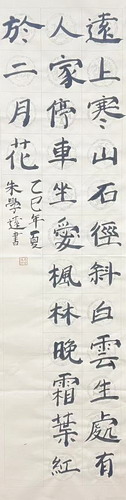 遠上寒山石徑斜白雲生處有
人家停車坐愛楓林晚霜葉紅
於二月花
乙巳年夏
朱學達書